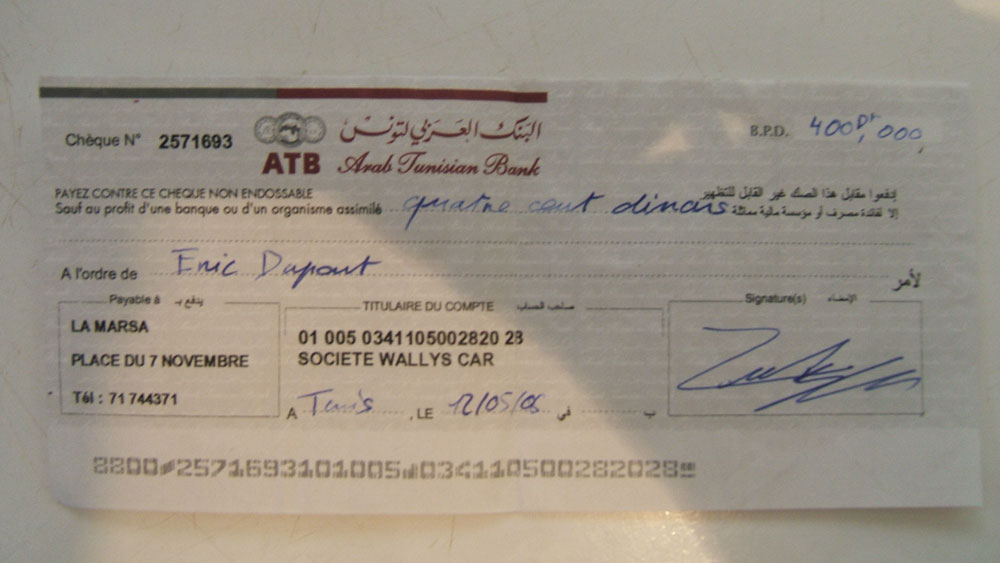 Chèque N° 2571693
ATB
البنك العربي لتونس
Arab Tunisian Bank
B.P.D. 400Dt,000
PAYEZ CONTRE CE CHEQUE NON ENDOSSABLE
Sauf au profit d'une banque ou d'un organisme assimilé
quatre cent dinars
إدفعوا مقابل هذا الصك غير القابل للتظهير
إلا لفائدة مصرف أو مؤسسة مالية مماثلة
A l'ordre de Eric Dupont لأمر
Payable à يدفع بـ
LA MARSA
PLACE DU 7 NOVEMBRE
Tél : 71 744371
TITULAIRE DU COMPTE صاحب الحساب
01 005 0341105002820 28
SOCIETE WALLYS CAR
A Tunis , LE 12/05/06 في ب
Signature(s) الإمضاء
2571693101005 034110500282028